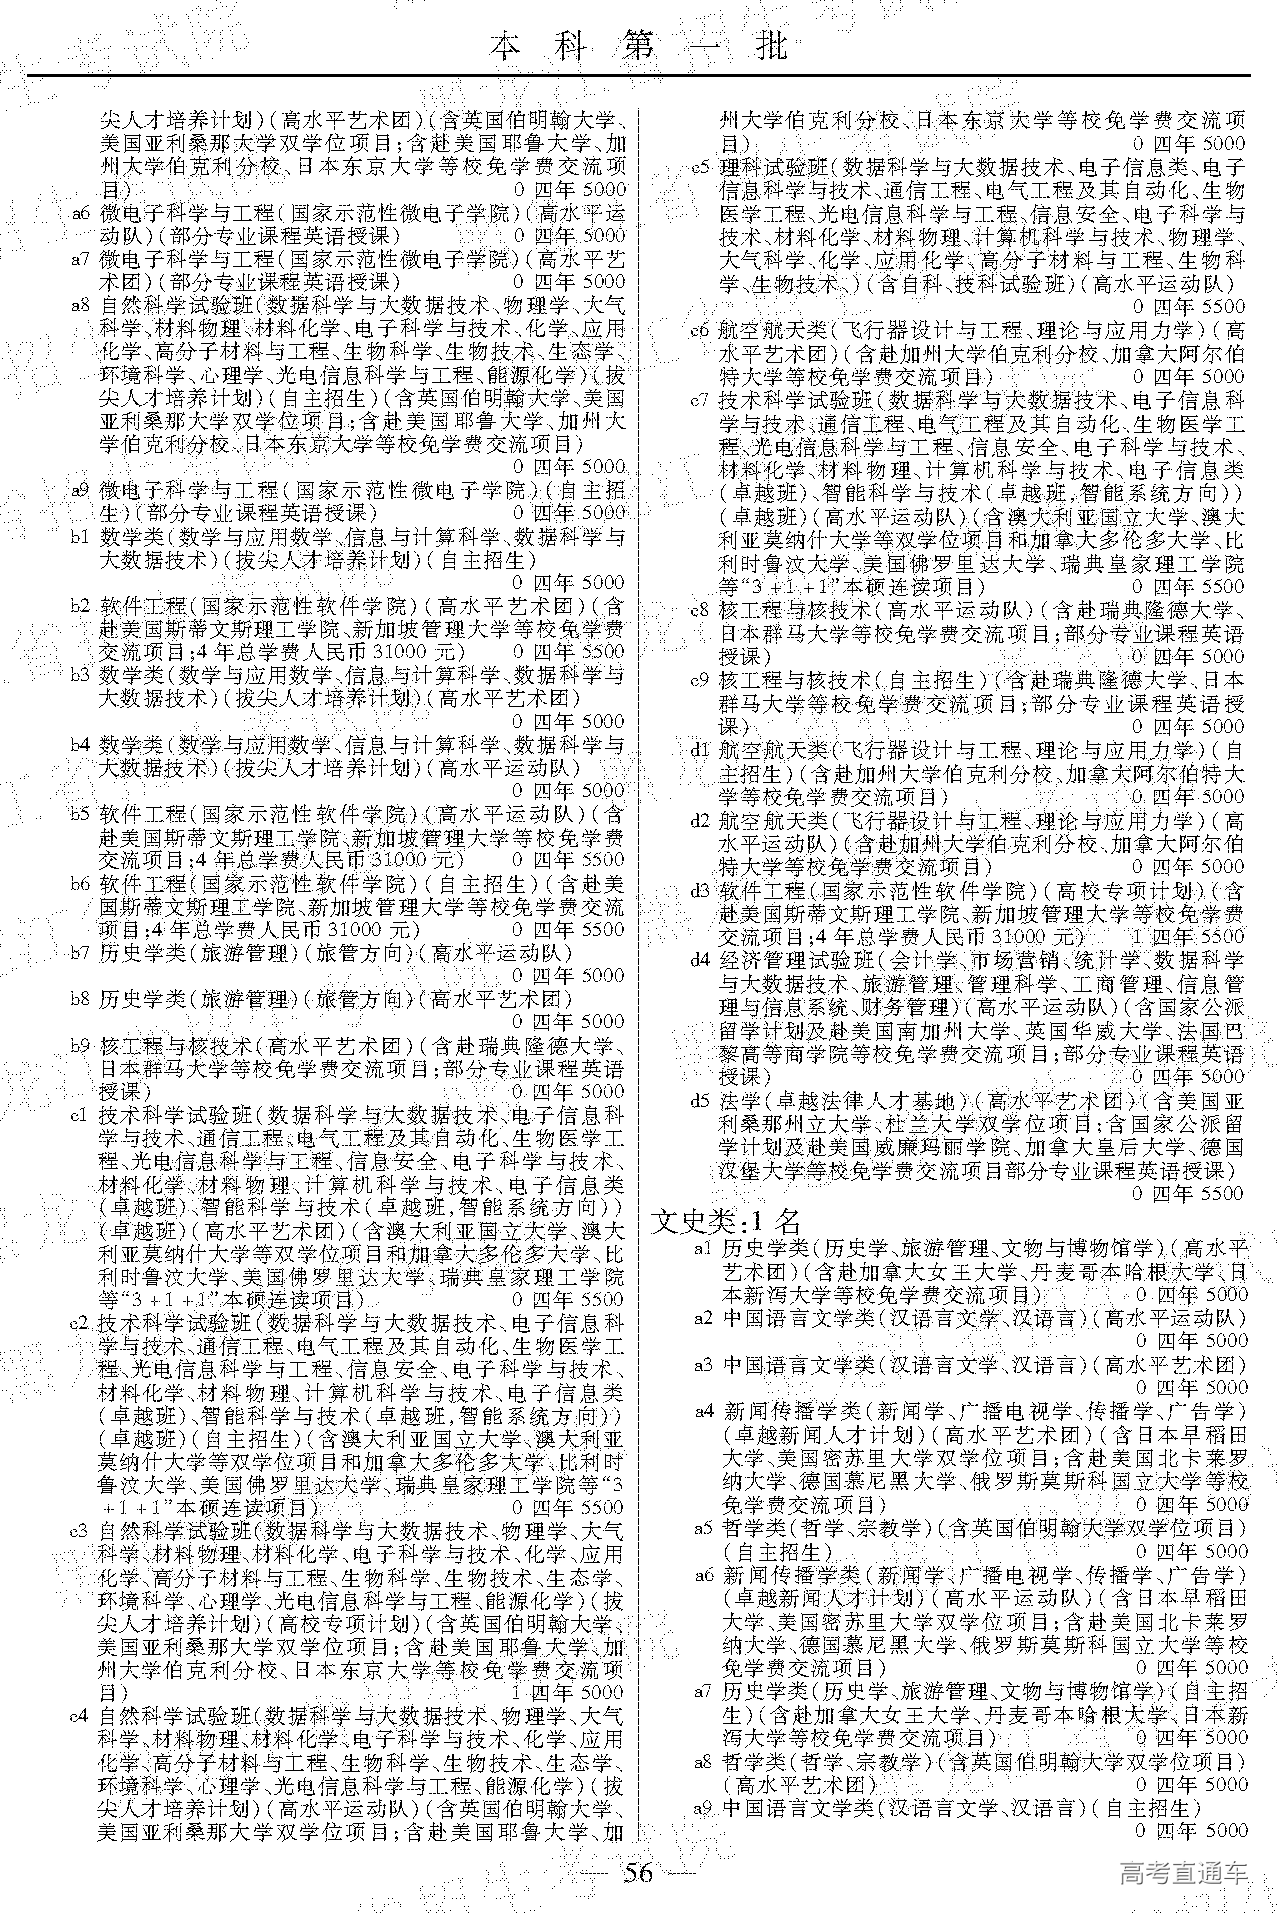 本科第一批
尖人才培养计划)(高水平艺术团)(含英国伯明翰大学、
美国亚利桑那大学双学位项目;含赴美国耶鲁大学、加
州大学伯克利分校、日本东京大学等校免学费交流项
目) 0 四年 5000
a6 微电子科学与工程(国家示范性微电子学院)(高水平运
动队)(部分专业课程英语授课) 0 四年 5000
a7 微电子科学与工程(国家示范性微电子学院)(高水平艺
术团)(部分专业课程英语授课) 0 四年 5000
a8 自然科学试验班(数据科学与大数据技术、物理学、大气
科学、材料物理、材料化学、电子科学与技术、化学、应用
化学、高分子材料与工程、生物科学、生物技术、生态学、
环境科学、心理学、光电信息科学与工程、能源化学)(拔
尖人才培养计划)(自主招生)(含英国伯明翰大学、美国
亚利桑那大学双学位项目;含赴美国耶鲁大学、加州大
学伯克利分校、日本东京大学等校免学费交流项目)
0 四年 5000
a9 微电子科学与工程(国家示范性微电子学院)(自主招
生)(部分专业课程英语授课) 0 四年 5000
b1 数学类(数学与应用数学、信息与计算科学、数据科学与
大数据技术)(拔尖人才培养计划)(自主招生)
0 四年 5000
b2 软件工程(国家示范性软件学院)(高水平艺术团)(含
赴美国斯蒂文斯理工学院、新加坡管理大学等校免学费
交流项目;4 年总学费人民币 31000 元) 0 四年 5500
b3 数学类(数学与应用数学、信息与计算科学、数据科学与
大数据技术)(拔尖人才培养计划)(高水平艺术团)
0 四年 5000
b4 数学类(数学与应用数学、信息与计算科学、数据科学与
大数据技术)(拔尖人才培养计划)(高水平运动队)
0 四年 5000
b5 软件工程(国家示范性软件学院)(高水平运动队)(含
赴美国斯蒂文斯理工学院、新加坡管理大学等校免学费
交流项目;4 年总学费人民币 31000 元) 0 四年 5500
b6 软件工程(国家示范性软件学院)(自主招生)(含赴美
国斯蒂文斯理工学院、新加坡管理大学等校免学费交流
项目;4 年总学费人民币 31000 元) 0 四年 5500
b7 历史学类(旅游管理)(旅管方向)(高水平运动队)
0 四年 5000
b8 历史学类(旅游管理)(旅管方向)(高水平艺术团)
0 四年 5000
b9 核工程与核技术(高水平艺术团)(含赴瑞典隆德大学、
日本群马大学等校免学费交流项目;部分专业课程英语
授课) 0 四年 5000
c1 技术科学试验班(数据科学与大数据技术、电子信息科
学与技术、通信工程、电气工程及其自动化、生物医学工
程、光电信息科学与工程、信息安全、电子科学与技术、
材料化学、材料物理、计算机科学与技术、电子信息类
(卓越班)、智能科学与技术(卓越班,智能系统方向))
(卓越班)(高水平艺术团)(含澳大利亚国立大学、澳大
利亚莫纳什大学等双学位项目和加拿大多伦多大学、比
利时鲁汶大学、美国佛罗里达大学、瑞典皇家理工学院
等“3+1+1”本硕连读项目) 0 四年 5500
c2 技术科学试验班(数据科学与大数据技术、电子信息科
学与技术、通信工程、电气工程及其自动化、生物医学工
程、光电信息科学与工程、信息安全、电子科学与技术、
材料化学、材料物理、计算机科学与技术、电子信息类
(卓越班)、智能科学与技术(卓越班,智能系统方向))
(卓越班)(自主招生)(含澳大利亚国立大学、澳大利亚
莫纳什大学等双学位项目和加拿大多伦多大学、比利时
鲁汶大学、美国佛罗里达大学、瑞典皇家理工学院等“3
+1+1”本硕连读项目) 0 四年 5500
c3 自然科学试验班(数据科学与大数据技术、物理学、大气
科学、材料物理、材料化学、电子科学与技术、化学、应用
化学、高分子材料与工程、生物科学、生物技术、生态学、
环境科学、心理学、光电信息科学与工程、能源化学)(拔
尖人才培养计划)(高校专项计划)(含英国伯明翰大学、
美国亚利桑那大学双学位项目;含赴美国耶鲁大学、加
州大学伯克利分校、日本东京大学等校免学费交流项
目) 1 四年 5000
c4 自然科学试验班(数据科学与大数据技术、物理学、大气
科学、材料物理、材料化学、电子科学与技术、化学、应用
化学、高分子材料与工程、生物科学、生物技术、生态学、
环境科学、心理学、光电信息科学与工程、能源化学)(拔
尖人才培养计划)(高水平运动队)(含英国伯明翰大学、
美国亚利桑那大学双学位项目;含赴美国耶鲁大学、加
州大学伯克利分校、日本东京大学等校免学费交流项
目) 0 四年 5000
c5 理科试验班(数据科学与大数据技术、电子信息类、电子
信息科学与技术、通信工程、电气工程及其自动化、生物
医学工程、光电信息科学与工程、信息安全、电子科学与
技术、材料化学、材料物理、计算机科学与技术、物理学、
大气科学、化学、应用化学、高分子材料与工程、生物科
学、生物技术、)(含自科、技科试验班)(高水平运动队)
0 四年 5500
c6 航空航天类(飞行器设计与工程、理论与应用力学)(高
水平艺术团)(含赴加州大学伯克利分校、加拿大阿尔伯
特大学等校免学费交流项目) 0 四年 5000
c7 技术科学试验班(数据科学与大数据技术、电子信息科
学与技术、通信工程、电气工程及其自动化、生物医学工
程、光电信息科学与工程、信息安全、电子科学与技术、
材料化学、材料物理、计算机科学与技术、电子信息类
(卓越班)、智能科学与技术(卓越班,智能系统方向))
(卓越班)(高水平运动队)(含澳大利亚国立大学、澳大
利亚莫纳什大学等双学位项目和加拿大多伦多大学、比
利时鲁汶大学、美国佛罗里达大学、瑞典皇家理工学院
等“3+1+1”本硕连读项目) 0 四年 5500
c8 核工程与核技术(高水平运动队)(含赴瑞典隆德大学、
日本群马大学等校免学费交流项目;部分专业课程英语
授课) 0 四年 5000
c9 核工程与核技术(自主招生)(含赴瑞典隆德大学、日本
群马大学等校免学费交流项目;部分专业课程英语授
课) 0 四年 5000
d1 航空航天类(飞行器设计与工程、理论与应用力学)(自
主招生)(含赴加州大学伯克利分校、加拿大阿尔伯特大
学等校免学费交流项目) 0 四年 5000
d2 航空航天类(飞行器设计与工程、理论与应用力学)(高
水平运动队)(含赴加州大学伯克利分校、加拿大阿尔伯
特大学等校免学费交流项目) 0 四年 5000
d3 软件工程(国家示范性软件学院)(高校专项计划)(含
赴美国斯蒂文斯理工学院、新加坡管理大学等校免学费
交流项目;4 年总学费人民币 31000 元) 1 四年 5500
d4 经济管理试验班(会计学、市场营销、统计学、数据科学
与大数据技术、旅游管理、管理科学、工商管理、信息管
理与信息系统、财务管理)(高水平运动队)(含国家公派
留学计划及赴美国南加州大学、英国华威大学、法国巴
黎高等商学院等校免学费交流项目;部分专业课程英语
授课) 0 四年 5000
d5 法学(卓越法律人才基地)(高水平艺术团)(含美国亚
利桑那州立大学、杜兰大学双学位项目;含国家公派留
学计划及赴美国威廉玛丽学院、加拿大皇后大学、德国
汉堡大学等校免学费交流项目部分专业课程英语授课)
0 四年 5500
文史类:1 名
a1 历史学类(历史学、旅游管理、文物与博物馆学)(高水平
艺术团)(含赴加拿大女王大学、丹麦哥本哈根大学、日
本新泻大学等校免学费交流项目) 0 四年 5000
a2 中国语言文学类(汉语言文学、汉语言)(高水平运动队)
0 四年 5000
a3 中国语言文学类(汉语言文学、汉语言)(高水平艺术团)
0 四年 5000
a4 新闻传播学类(新闻学、广播电视学、传播学、广告学)
(卓越新闻人才计划)(高水平艺术团)(含日本早稻田
大学、美国密苏里大学双学位项目;含赴美国北卡莱罗
纳大学、德国慕尼黑大学、俄罗斯莫斯科国立大学等校
免学费交流项目) 0 四年 5000
a5 哲学类(哲学、宗教学)(含英国伯明翰大学双学位项目)
(自主招生) 0 四年 5000
a6 新闻传播学类(新闻学、广播电视学、传播学、广告学)
(卓越新闻人才计划)(高水平运动队)(含日本早稻田
大学、美国密苏里大学双学位项目;含赴美国北卡莱罗
纳大学、德国慕尼黑大学、俄罗斯莫斯科国立大学等校
免学费交流项目) 0 四年 5000
a7 历史学类(历史学、旅游管理、文物与博物馆学)(自主招
生)(含赴加拿大女王大学、丹麦哥本哈根大学、日本新
泻大学等校免学费交流项目) 0 四年 5000
a8 哲学类(哲学、宗教学)(含英国伯明翰大学双学位项目)
(高水平艺术团) 0 四年 5000
a9 中国语言文学类(汉语言文学、汉语言)(自主招生)
0 四年 5000
— 56 —
高考直通车